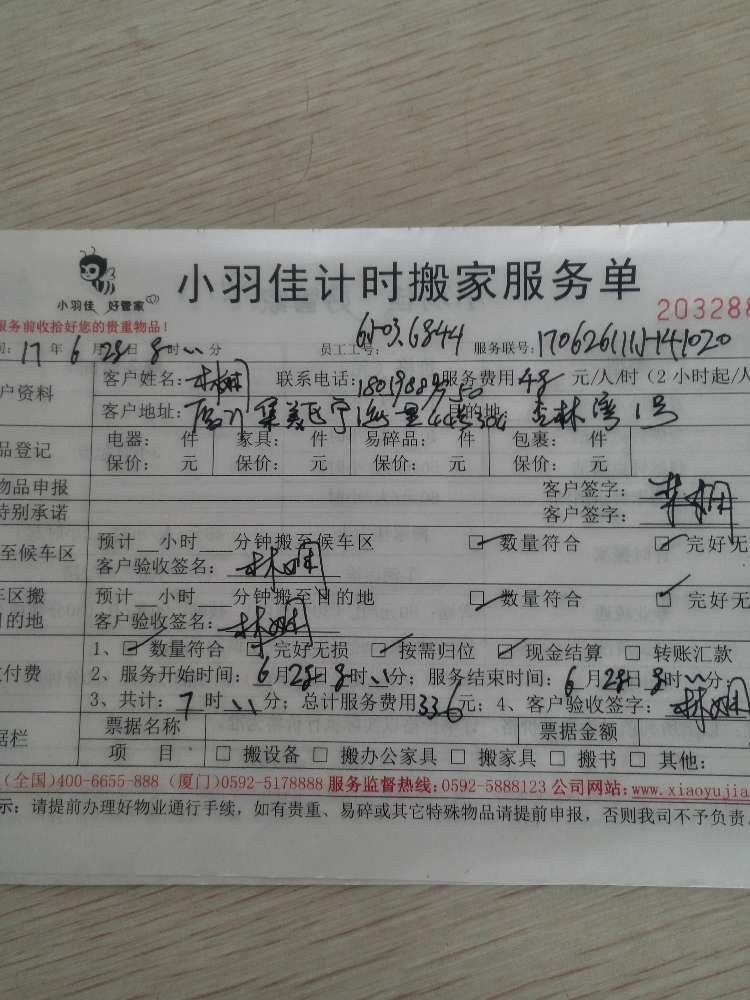 小羽佳 好管家
小羽佳计时搬家服务单
203288
服务前收拾好您的贵重物品!
间:17年6月28日8时 分 员工工号: 6503.6844 服务联号:
户资料 客户姓名:林娴 联系电话: 服务费用48元/人/时(2小时起/人
客户地址:厦门集美 目的地:杏林湾1号
品登记 电器: 件 家具: 件 易碎品: 件 包裹: 件
保价: 元 保价: 元 保价: 元 保价: 元
物品申报 客户签字:林娴
特别承诺 客户签字:
至候车区 预计__小时___分钟搬至候车区 ☑数量符合 ☑完好无
客户验收签名:林娴
车区搬 预计__小时___分钟搬至目的地 ☑数量符合 ☑完好无
目的地 客户验收签名:林娴
1、☑数量符合 ☑完好无损 ☑按需归位 ☑现金结算 □转账汇款
付费 2、服务开始时间:6月28日8时 分;服务结束时间:6月28日8时 分;
3、共计:7时 分;总计服务费用336元;4、客户验收签字:林娴
据栏 票据名称 票据金额
项 目 □搬设备 □搬办公家具 □搬家具 □搬书 □其他:
(全国)400-6655-888 (厦门)0592-5178888 服务监督热线:0592-5888123 公司网站:www.xiaoyujia
示:请提前办理好物业通行手续,如有贵重、易碎或其它特殊物品请提前申报,否则我司不予负责。